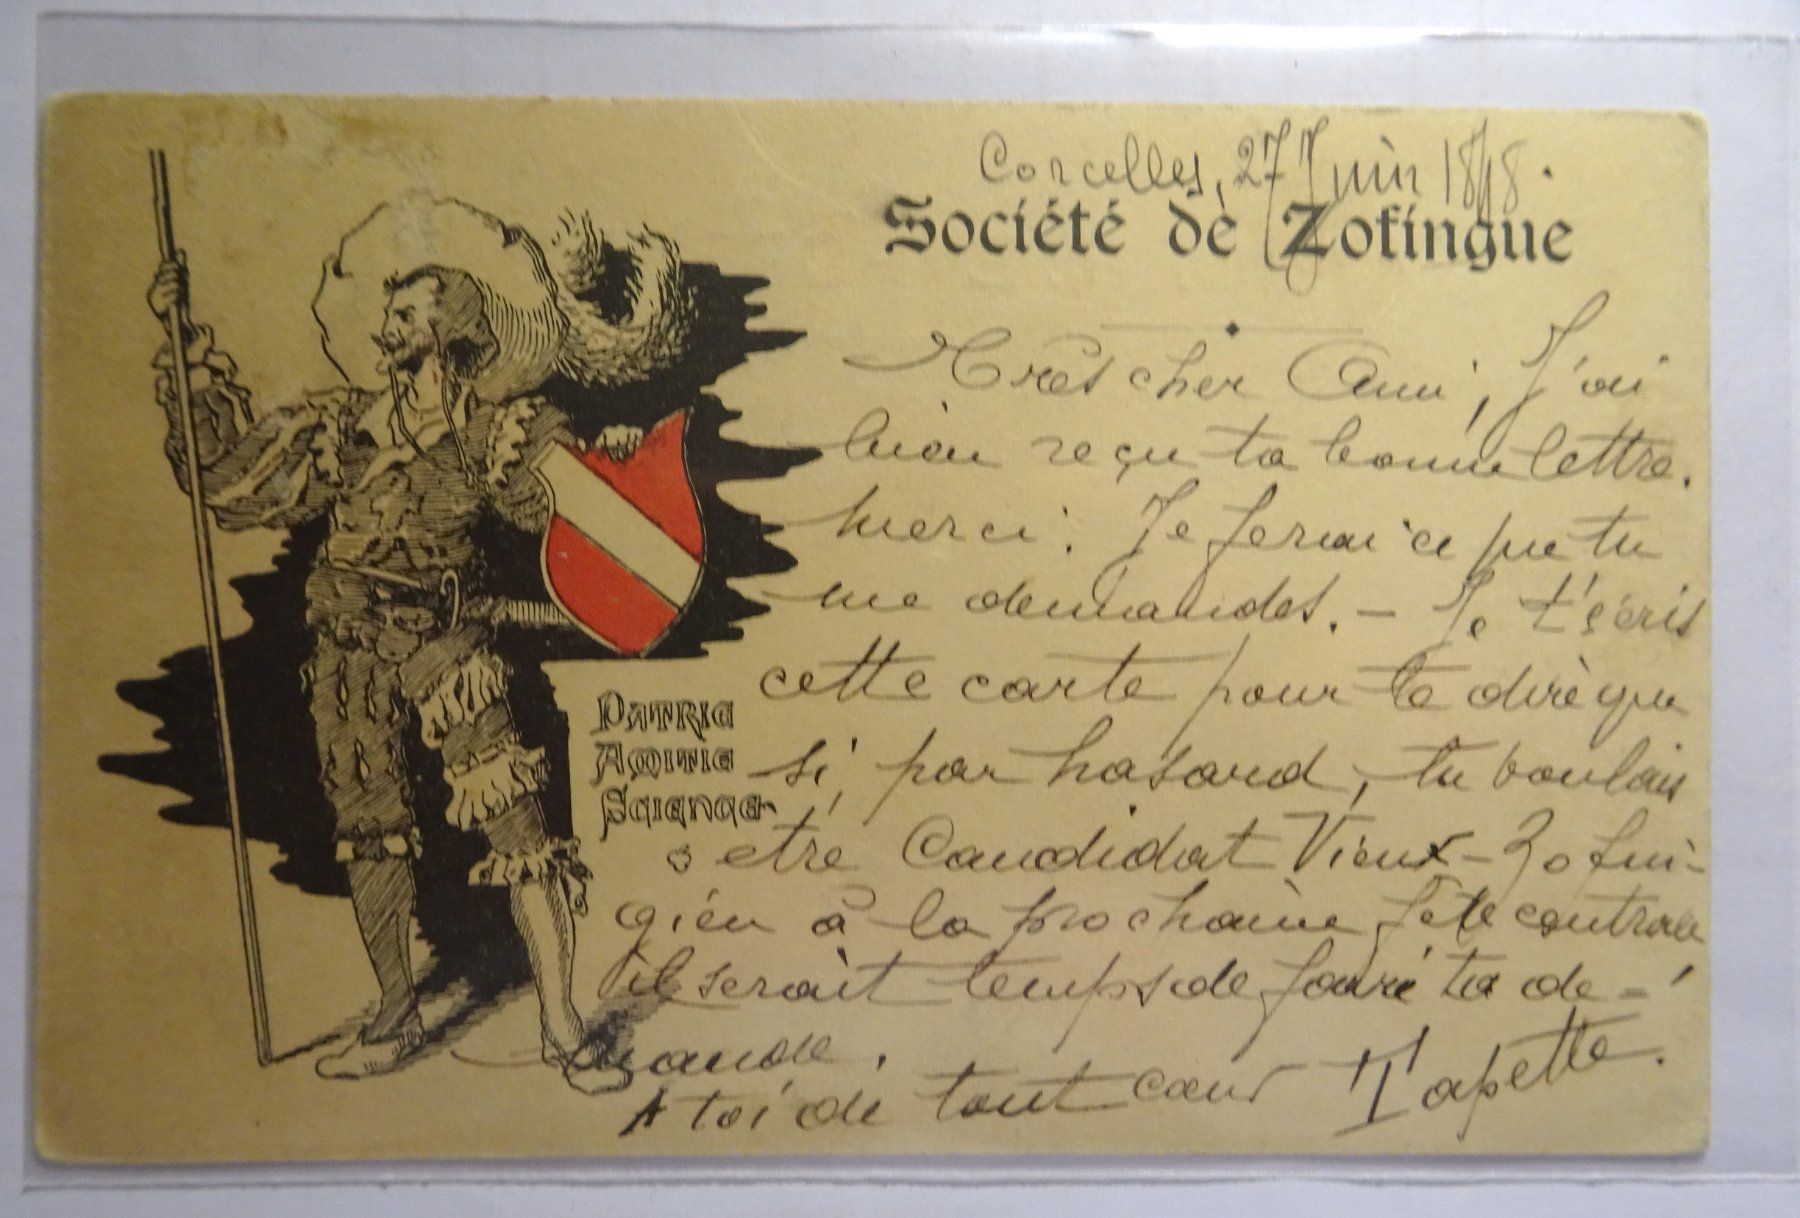 Corcelles, 27 Juin 1898.
Société de Zofingue
Très cher Ami, J'ai
bien reçu ta bonne lettre.
Merci. Je ferai ce que tu
me demandes. – Je t'écris
cette carte pour te dire que
si, par hasard, tu voulais
être Candidat Vieux-Zofin-
gien à la prochaine fête centrale
il serait temps de faire ta de-
mande.
A toi de tout cœur Tapette.
PATRIE
AMITIE
SCIENCE